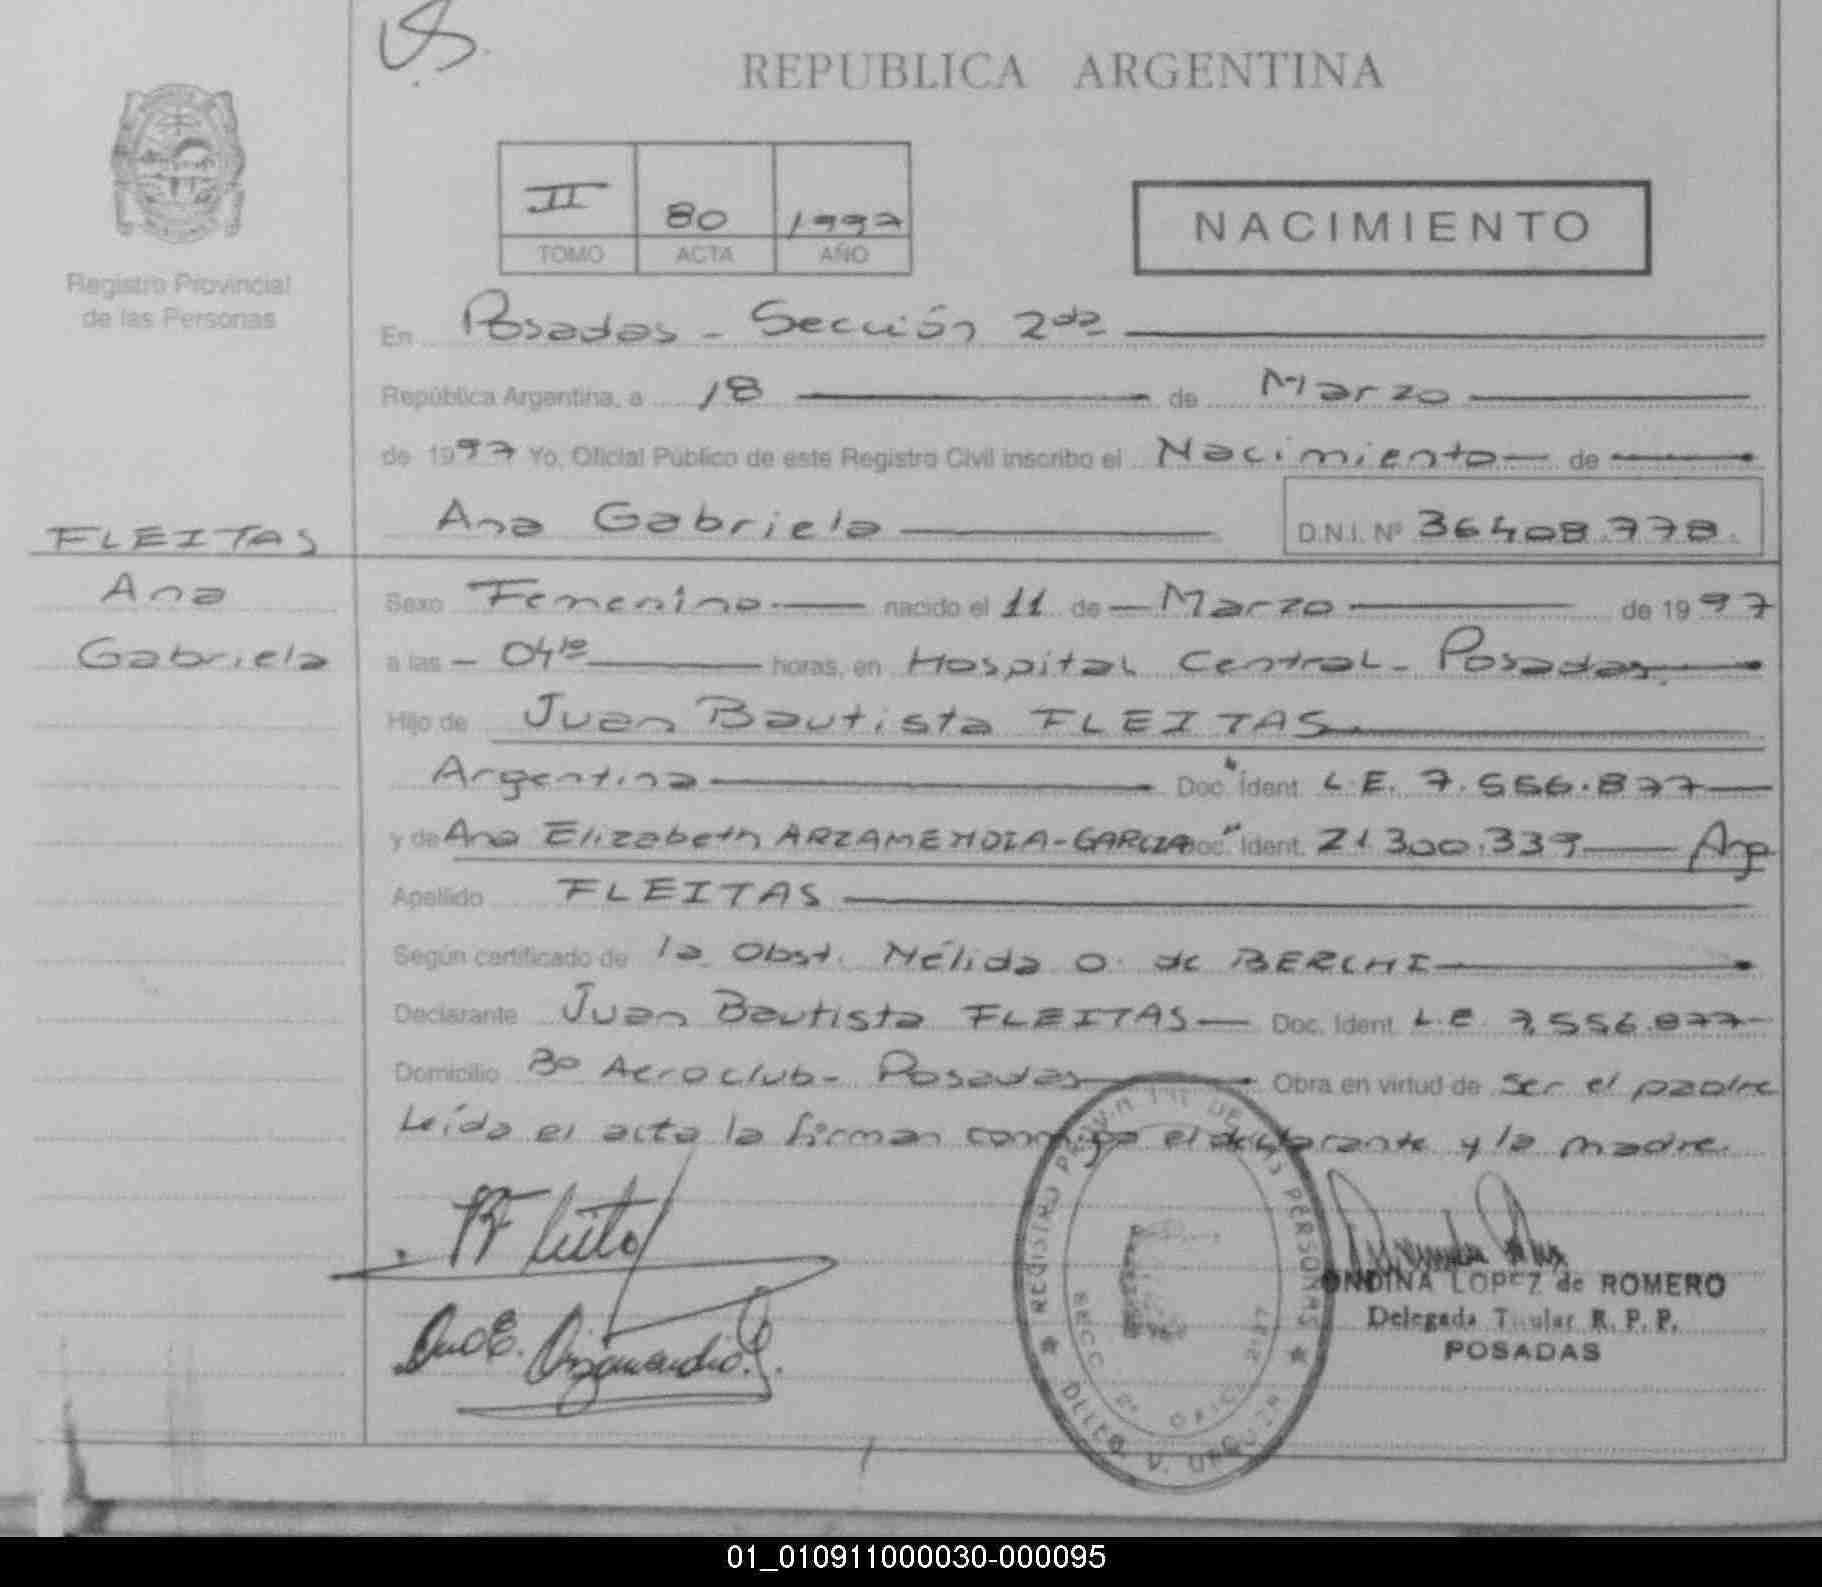 REPUBLICA ARGENTINA
II 80 1997
TOMO ACTA AÑO
NACIMIENTO
Registro Provincial
de las Personas
En Posadas - Sección 2da
República Argentina, a 18 de Marzo
de 1997 Yo, Oficial Público de este Registro Civil inscribo el Nacimiento de
Ana Gabriela D.N.I. Nº 36408.778.
FLEITAS
Ana
Gabriela
Sexo Femenino nacido el 11 de Marzo de 1997
a las 04 horas, en Hospital Central - Posadas.
Hijo de Juan Bautista FLEITAS
Argentina Doc. Ident. L.E. 7.556.877
y de Ana Elizabeth ARZAMENDIA-GARCIA Doc. Ident. 21.300.339 Arg
Apellido FLEITAS
Según certificado de la Obst. Nélida O. de BERCHI
Declarante Juan Bautista FLEITAS Doc. Ident. L.E. 7.556.877
Domicilio Bº Aeroclub - Posadas Obra en virtud de Ser el padre
Leída el acta la firman conmigo el declarante y la madre.
REGISTRO PROVINCIAL DE LAS PERSONAS
SECC. 2º
ONDINA LOPEZ de ROMERO
Delegada Titular R. P. P.
POSADAS
01_010911000030-000095